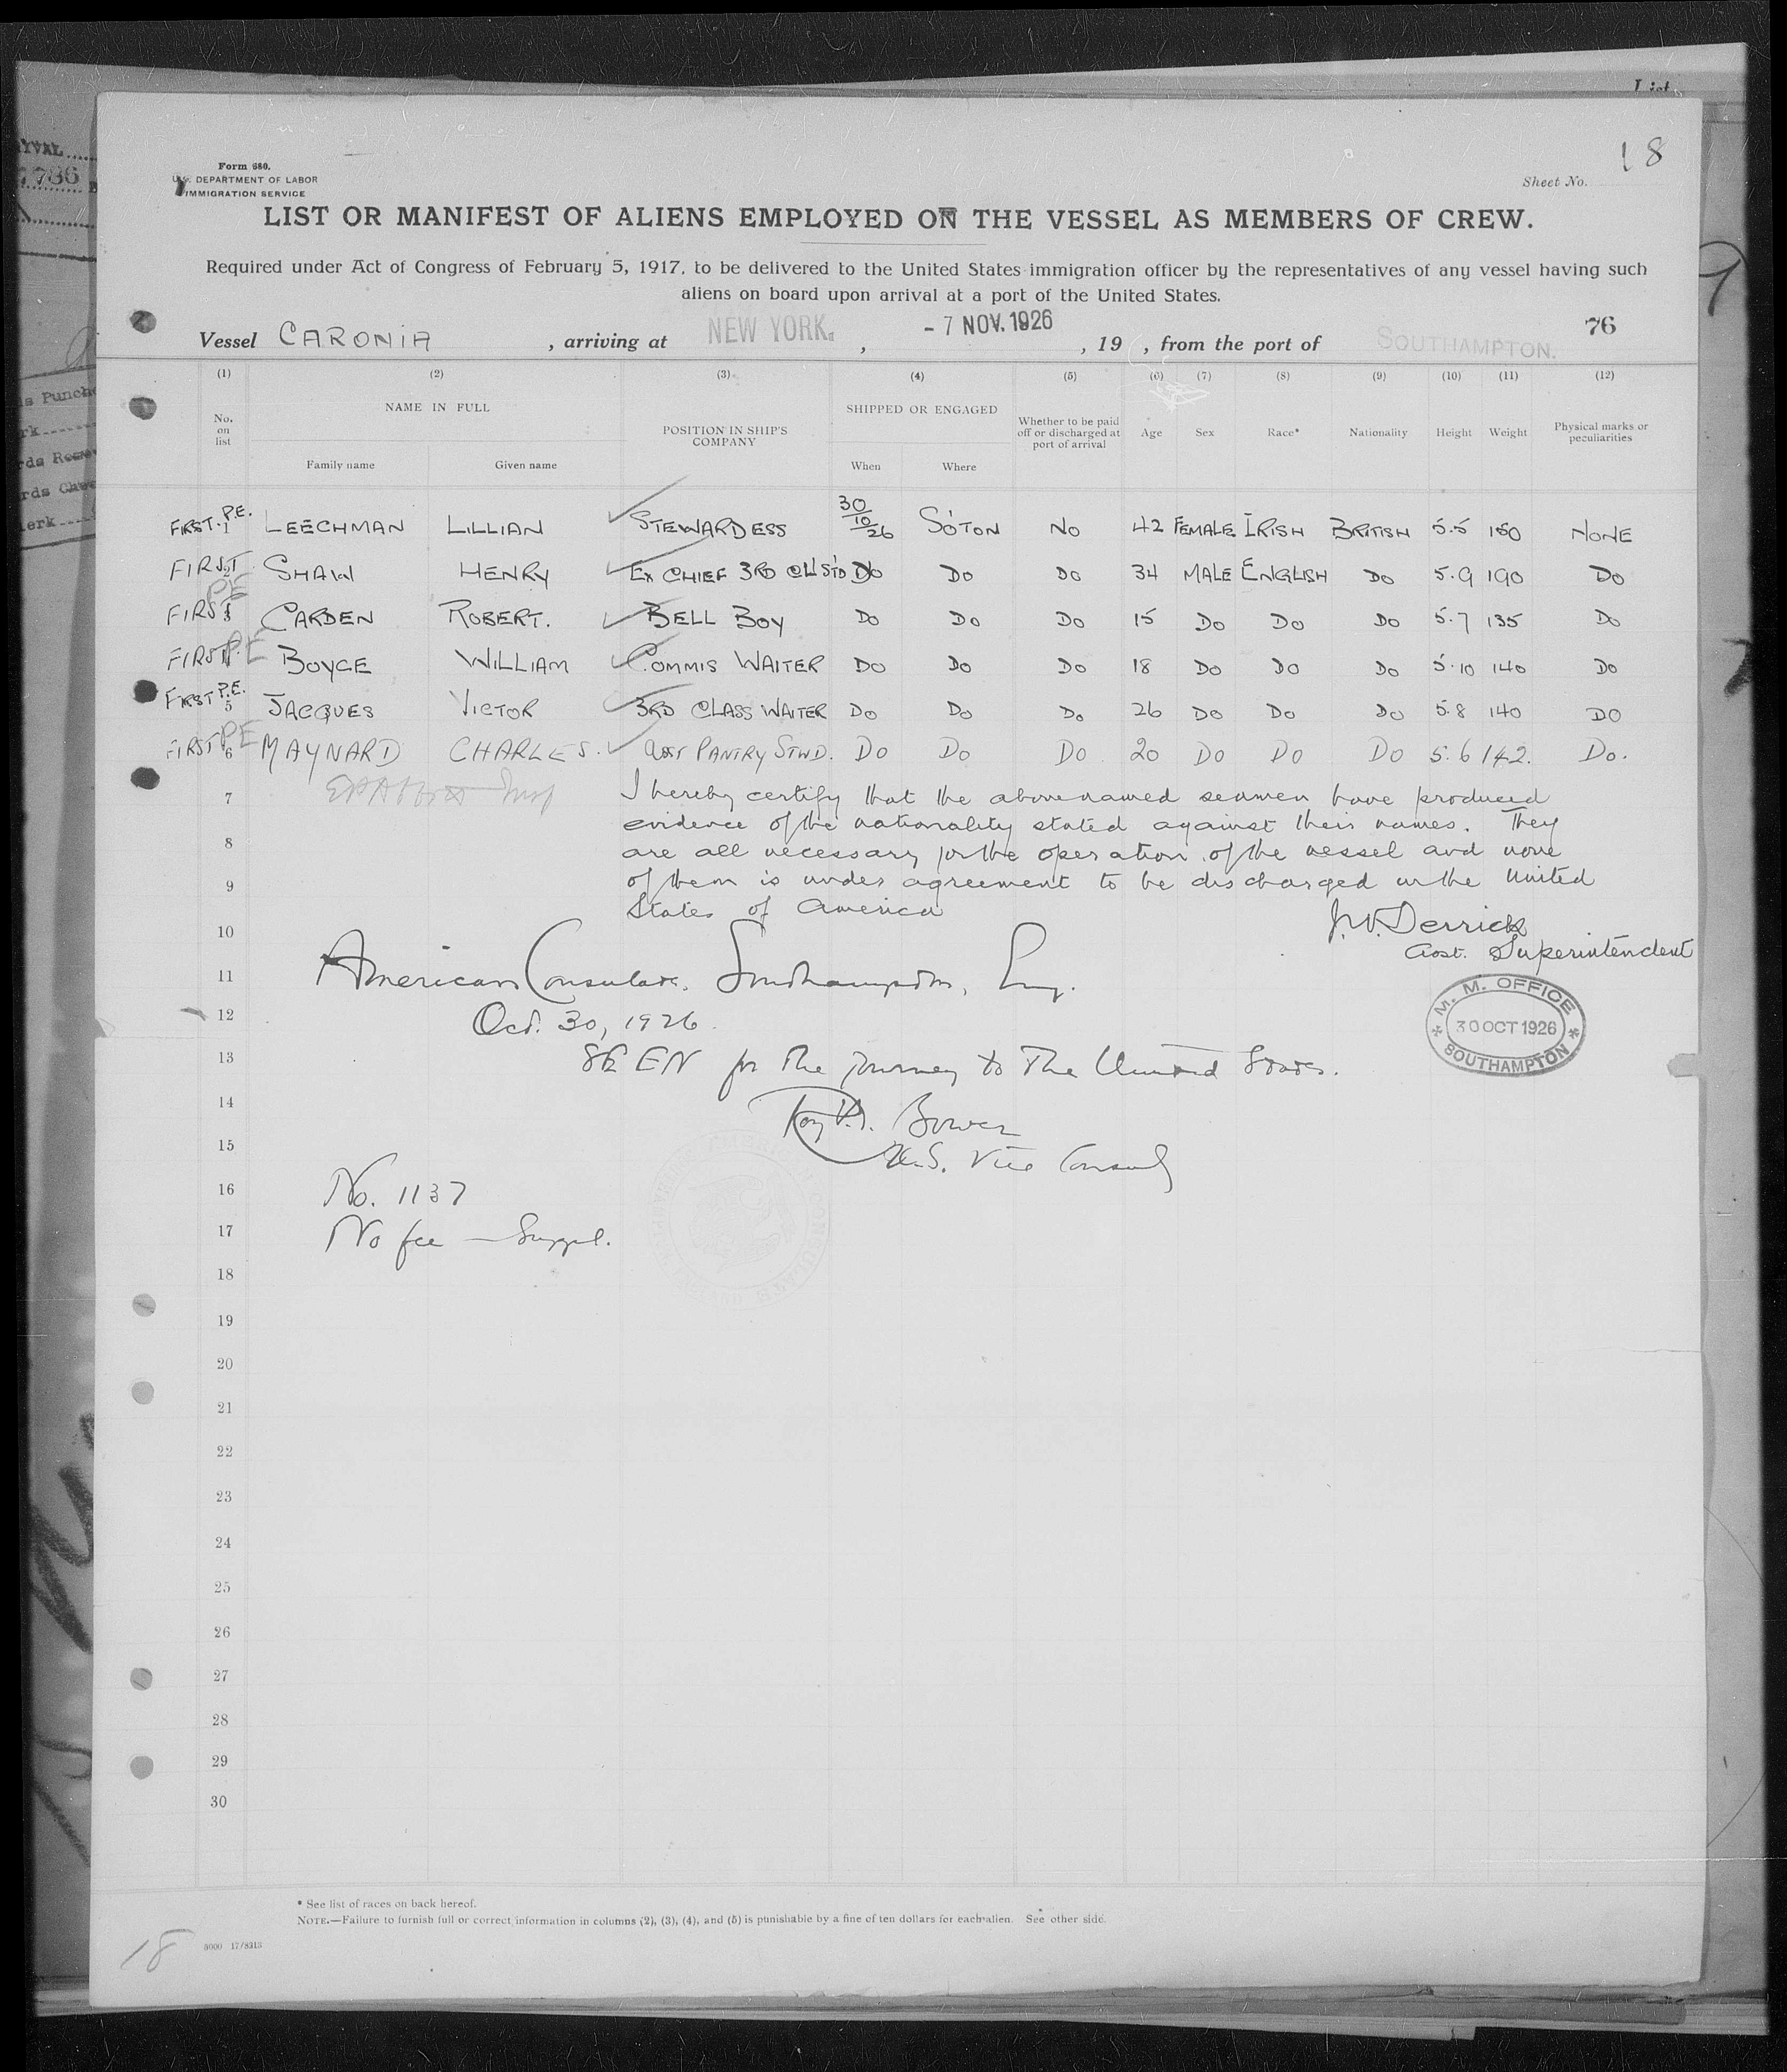 List
18
Form 680.
U.S. DEPARTMENT OF LABOR
IMMIGRATION SERVICE
Sheet No.
LIST OR MANIFEST OF ALIENS EMPLOYED ON THE VESSEL AS MEMBERS OF CREW.
Required under Act of Congress of February 5, 1917, to be delivered to the United States immigration officer by the representatives of any vessel having such
aliens on board upon arrival at a port of the United States.
76
Vessel CARONIA , arriving at NEW YORK. , - 7 NOV. 1926 , 19 , from the port of SOUTHAMPTON.
(1) (2) (3) (4) (5) (6) (7) (8) (9) (10) (11) (12)
No. on list NAME IN FULL POSITION IN SHIP'S COMPANY SHIPPED OR ENGAGED Whether to be paid off or discharged at port of arrival Age Sex Race* Nationality Height Weight Physical marks or peculiarities
Family name Given name When Where
FIRST. P.E. 1 LEECHMAN LILLIAN STEWARDESS 30/10/26 SOTON NO 42 FEMALE IRISH BRITISH 5.5 150 NONE
FIRST 2 SHAW HENRY EX CHIEF 3RD CL STD DO DO DO 34 MALE ENGLISH DO 5.9 190 DO
FIRST PE 3 CARDEN ROBERT. BELL BOY DO DO DO 15 DO DO DO 5.7 135 DO
FIRST PE BOYCE WILLIAM COMMIS WAITER DO DO DO 18 DO DO DO 5.10 140 DO
FIRST P.E. 5 JACQUES VICTOR 3RD CLASS WAITER DO DO DO 26 DO DO DO 5.8 140 DO
FIRST PE 6 MAYNARD CHARLES. ASST PANTRY STWD. DO DO DO 20 DO DO DO 5.6 142. DO.
7 I hereby certify that the abovenamed seamen have produced
evidence of the nationality stated against their names. They
8 are all necessary for the operation of the vessel and none
9 of them is under agreement to be discharged in the United
States of America
J.W. Derrick
10 Asst. Superintendent
11 American Consulate, Southampton, Eng.
M. M. OFFICE
30 OCT 1926
SOUTHAMPTON
12 Oct. 30, 1926.
13 SEEN for the journey to the United States.
14 Roy W. Bower
15 U.S. Vice Consul
16 No. 1137
17 No fee — Suppl.
18
19
20
21
22
23
24
25
26
27
28
29
30
* See list of races on back hereof.
NOTE.—Failure to furnish full or correct information in columns (2), (3), (4), and (5) is punishable by a fine of ten dollars for each alien. See other side.
18
5000 17/8313